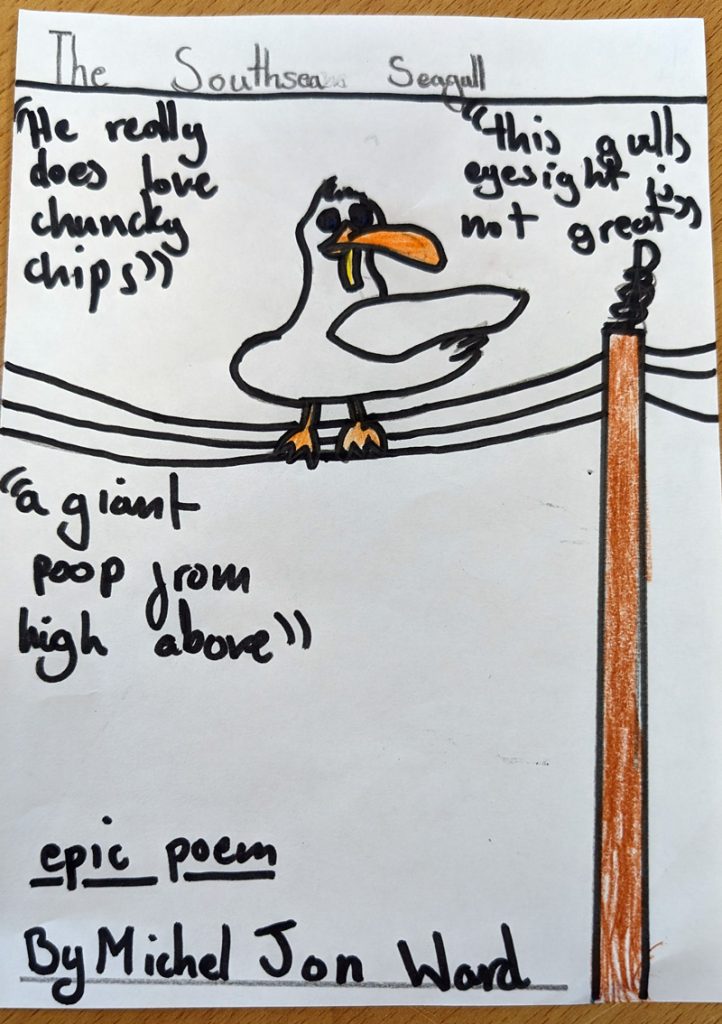 The Southsea Seagull
"He really
does love
chuncky
chips"
"this gulls
eyesight is
not great"
"a giant
poop from
high above"
epic poem
By Michel Jon Ward